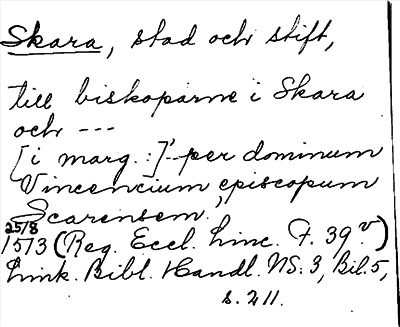 Skara, stad och stift,
till biskoparne i Skara
och ---
[i marg. :] - per dominum
Vincencium, episcopum
Scarensem.
25/8
1513 (Reg. Eccl. Linc. F. 39 v)
Link. Bibl. Handl. NS. 3, Bil. 5,
s. 211.